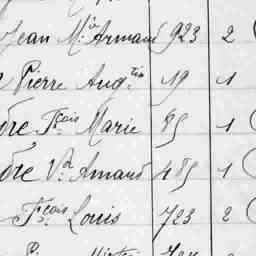 Jean M.ie Armand 923 2
Pierre Aug.tin 19 1
dre Fçois Marie 85 1
dre V.r Amand 485 1
Fçois Louis 723 2